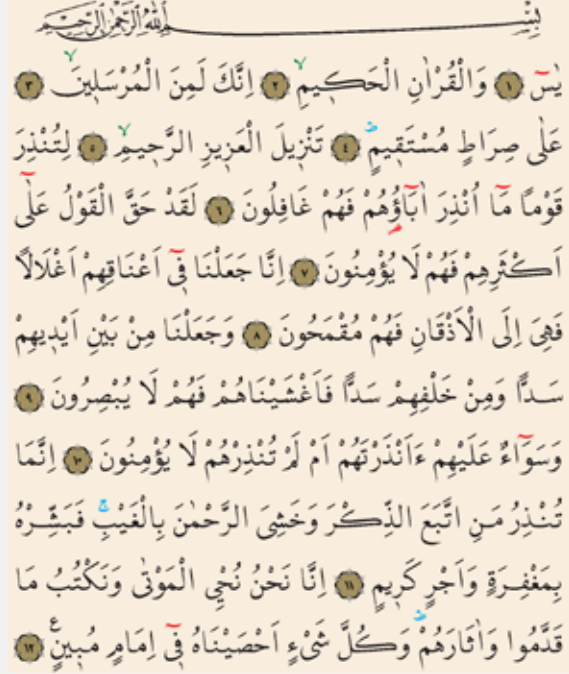 بِسْمِ اللّٰهِ الرَّحْمٰنِ الرَّحِيمِ
يٰسٓ ﴿١﴾ وَالْقُرْاٰنِ الْحَكِيمِۙ ﴿٢﴾ اِنَّكَ لَمِنَ الْمُرْسَلِينَۙ ﴿٣﴾
عَلٰى صِرَاطٍ مُسْتَقِيمٍۜ ﴿٤﴾ تَنْزِيلَ الْعَزِيزِ الرَّحِيمِۙ ﴿٥﴾ لِتُنْذِرَ
قَوْمًا مَٓا اُنْذِرَ اٰبَٓاؤُ۬هُمْ فَهُمْ غَافِلُونَ ﴿٦﴾ لَقَدْ حَقَّ الْقَوْلُ عَلٰٓى
اَكْثَرِهِمْ فَهُمْ لَا يُؤْمِنُونَ ﴿٧﴾ اِنَّا جَعَلْنَا فِٓى اَعْنَاقِهِمْ اَغْلَالًا
فَهِىَ اِلَى الْاَذْقَانِ فَهُمْ مُقْمَحُونَ ﴿٨﴾ وَجَعَلْنَا مِنْ بَيْنِ اَيْدِيهِمْ
سَدًّا وَمِنْ خَلْفِهِمْ سَدًّا فَاَغْشَيْنَاهُمْ فَهُمْ لَا يُبْصِرُونَ ﴿٩﴾
وَسَوَٓاءٌ عَلَيْهِمْ ءَاَنْذَرْتَهُمْ اَمْ لَمْ تُنْذِرْهُمْ لَا يُؤْمِنُونَ ﴿١٠﴾ اِنَّمَا
تُنْذِرُ مَنِ اتَّبَعَ الذِّكْرَ وَخَشِىَ الرَّحْمٰنَ بِالْغَيْبِۚ فَبَشِّرْهُ
بِمَغْفِرَةٍ وَاَجْرٍ كَرِيمٍ ﴿١١﴾ اِنَّا نَحْنُ نُحْيِ الْمَوْتٰى وَنَكْتُبُ مَا
قَدَّمُوا وَاٰثَارَهُمْۜ وَكُلَّ شَىْءٍ اَحْصَيْنَاهُ فِٓى اِمَامٍ مُبِينٍ۟ ﴿١٢﴾